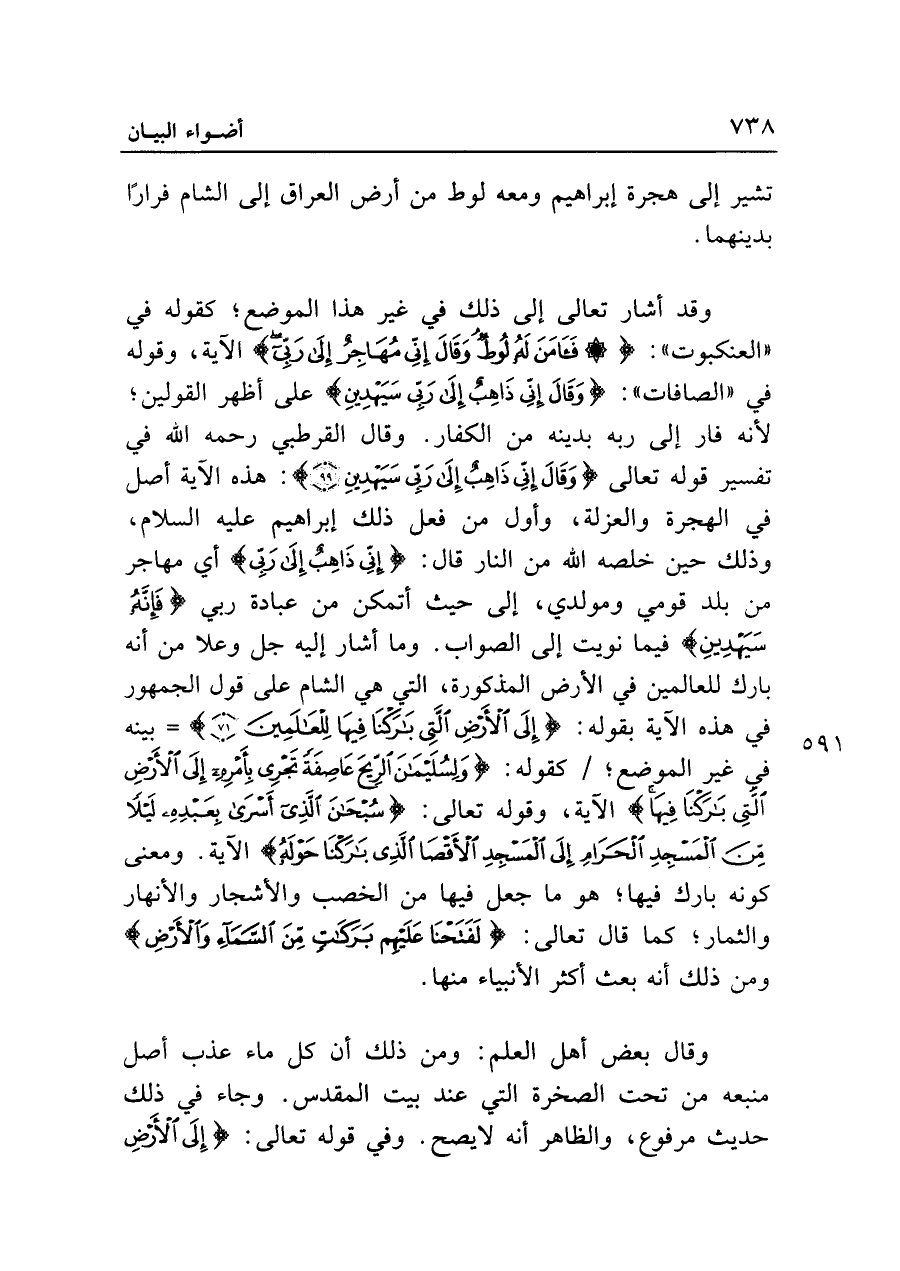 ٧٣٨ أضواء البيان
تشير إلى هجرة إبراهيم ومعه لوط من أرض العراق إلى الشام فرارًا
بدينهما.
وقد أشار تعالى إلى ذلك في غير هذا الموضع؛ كقوله في
«العنكبوت»: ﴿ ۞ فَـَٔامَنَ لَهُۥ لُوطٞۘ وَقَالَ إِنِّي مُهَاجِرٌ إِلَىٰ رَبِّيٓۖ﴾ الآية، وقوله
في «الصافات»: ﴿وَقَالَ إِنِّي ذَاهِبٌ إِلَىٰ رَبِّي سَيَهۡدِينِ﴾ على أظهر القولين؛
لأنه فار إلى ربه بدينه من الكفار. وقال القرطبي رحمه الله في
تفسير قوله تعالى ﴿وَقَالَ إِنِّي ذَاهِبٌ إِلَىٰ رَبِّي سَيَهۡدِينِ ٩٩﴾: هذه الآية أصل
في الهجرة والعزلة، وأول من فعل ذلك إبراهيم عليه السلام،
وذلك حين خلصه الله من النار قال: ﴿إِنِّي ذَاهِبٌ إِلَىٰ رَبِّي﴾ أي مهاجر
من بلد قومي ومولدي، إلى حيث أتمكن من عبادة ربي ﴿فَإِنَّهُۥ
سَيَهۡدِينِ﴾ فيما نويت إلى الصواب. وما أشار إليه جل وعلا من أنه
بارك للعالمين في الأرض المذكورة، التي هي الشام على قول الجمهور
في هذه الآية بقوله: ﴿إِلَى ٱلۡأَرۡضِ ٱلَّتِي بَٰرَكۡنَا فِيهَا لِلۡعَٰلَمِينَ ٧١﴾ = بينه
٥٩١
في غير الموضع؛ / كقوله: ﴿وَلِسُلَيۡمَٰنَ ٱلرِّيحَ عَاصِفَةٗ تَجۡرِي بِأَمۡرِهِۦٓ إِلَى ٱلۡأَرۡضِ
ٱلَّتِي بَٰرَكۡنَا فِيهَاۚ﴾ الآية، وقوله تعالى: ﴿سُبۡحَٰنَ ٱلَّذِيٓ أَسۡرَىٰ بِعَبۡدِهِۦ لَيۡلٗا
مِّنَ ٱلۡمَسۡجِدِ ٱلۡحَرَامِ إِلَى ٱلۡمَسۡجِدِ ٱلۡأَقۡصَا ٱلَّذِي بَٰرَكۡنَا حَوۡلَهُۥ﴾ الآية. ومعنى
كونه بارك فيها؛ هو ما جعل فيها من الخصب والأشجار والأنهار
والثمار؛ كما قال تعالى: ﴿لَفَتَحۡنَا عَلَيۡهِم بَرَكَٰتٖ مِّنَ ٱلسَّمَآءِ وَٱلۡأَرۡضِ﴾
ومن ذلك أنه بعث أكثر الأنبياء منها.
وقال بعض أهل العلم: ومن ذلك أن كل ماء عذب أصل
منبعه من تحت الصخرة التي عند بيت المقدس. وجاء في ذلك
حديث مرفوع، والظاهر أنه لايصح. وفي قوله تعالى: ﴿إِلَى ٱلۡأَرۡضِ